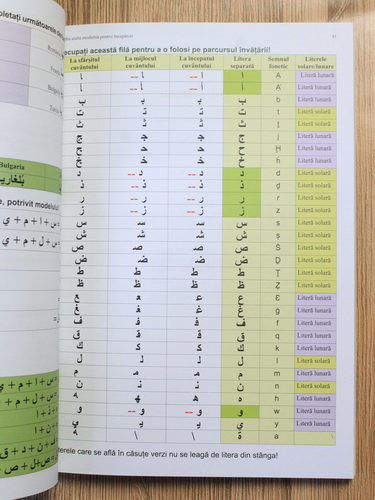 limba arabă modernă pentru începători
Decupați această filă pentru a o folosi pe parcursul învățării!
La sfârșitul cuvântului La mijlocul cuvântului La începutul cuvântului Litera separată Semnul fonetic Literele solare/lunare
ـا ـا -- ا ا A Literă lunară
ـا ـا -- ا ا Literă lunară
ـب ـبـ بـ ب b Literă lunară
ـت ـتـ تـ ت t Literă solară
ـث ـثـ ثـ ث Literă solară
ـج ـجـ جـ ج Literă lunară
ـح ـحـ حـ ح Ḥ Literă lunară
ـخ ـخـ خـ خ Literă lunară
ـد ـد -- د د d Literă solară
ـذ ـذ -- ذ ذ ḏ Literă solară
ـر ـر -- ر ر r Literă solară
ـز ـز -- ز ز z Literă solară
ـس ـسـ سـ س s Literă solară
ـش ـشـ شـ ش ș Literă solară
ـص ـصـ صـ ص Literă solară
ـض ـضـ ضـ ض Ḍ Literă solară
ـط ـطـ طـ ط Ṭ Literă solară
ـظ ـظـ ظـ ظ Ẓ Literă solară
ـع ـعـ عـ ع Literă lunară
ـغ ـغـ غـ غ Literă lunară
ـف ـفـ فـ ف f Literă lunară
ـق ـقـ قـ ق q Literă lunară
ـك ـكـ كـ ك k Literă lunară
ـل ـلـ لـ ل l Literă solară
ـم ـمـ مـ م m Literă lunară
ـن ـنـ نـ ن n Literă solară
ـه ـهـ هـ ه h Literă lunară
ـو ـو -- و و w Literă lunară
ـي ـيـ يـ ي y Literă lunară
ـة \ \ ة a \
Literele care se află în căsuțe verzi nu se leagă de litera din stânga!
Bulgaria
potrivit modelului